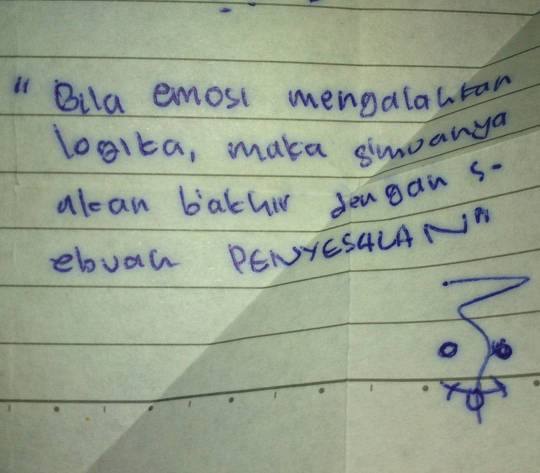 " Bila emosi mengalahkan
logika, maka simuanya
akan bakhir dengan s-
ebuah PENYESALAN"